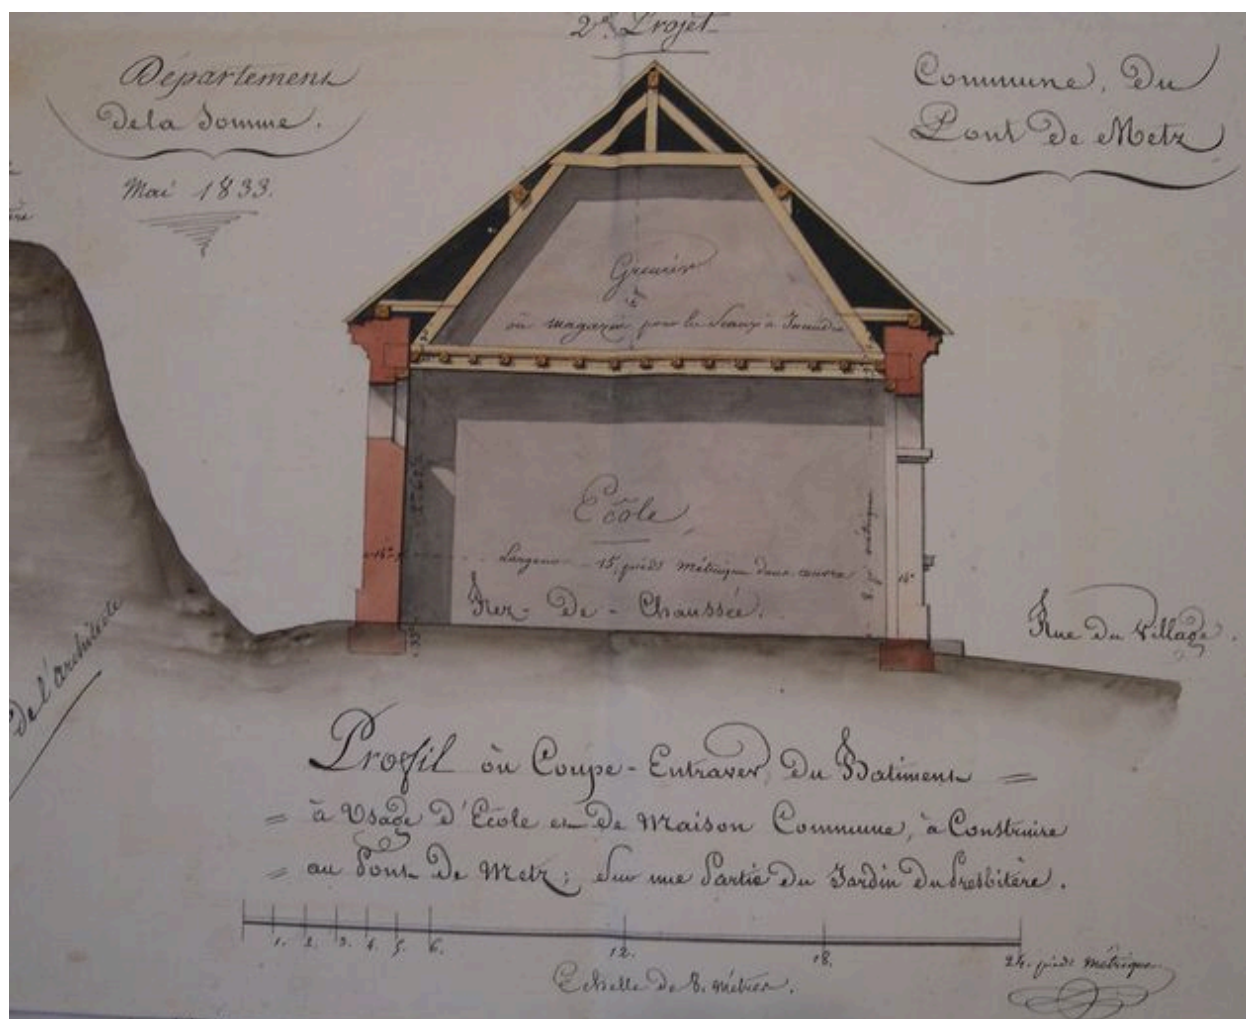 2e. Projet
Département
De la Somme.
Mai 1833.
Commune, Du
Pont De Metz
Grenier
où magazin pour les Seaux à Incendie
École
Largeur 15 pieds métrique dans œuvre
Rez-De-Chaussée.
Rue du Village.
De l'architecte
Profil où Coupe-Entraver, Du Batiment
à Usage d'École et De Maison Commune, à Construire
au Pont De Metz; Sur une Partie du Jardin du Presbitère.
1. 2. 3. 4. 5. 6. 12. 18. 24. pieds métrique
Echelle de 8. métres.